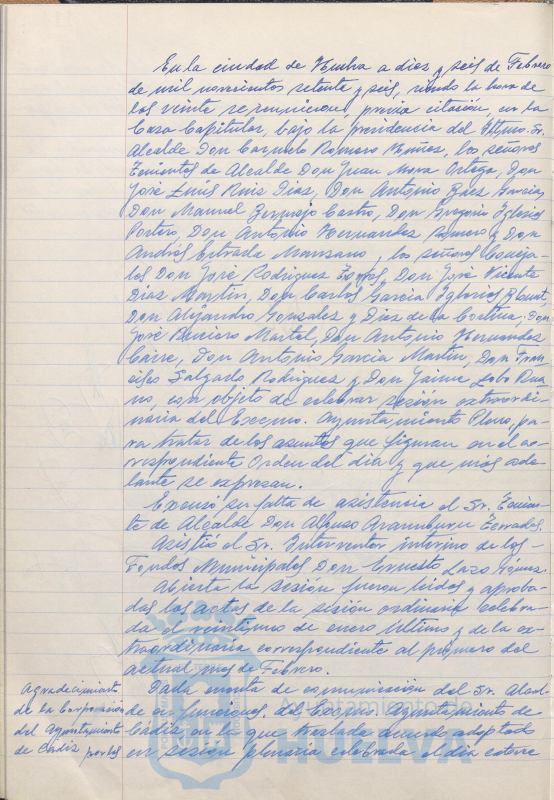 En la ciudad de Huelva a diez y seis de Febrero
de mil novecientos setenta y seis, siendo la hora de
las veinte se reunieron, previa citación, en la
Casa Capitular, bajo la presidencia del Iltmo. Sr.
Alcalde Don Carmelo Romero Núñez, los señores
Tenientes de Alcalde Don Juan Mora Ortega, Don
José Luis Ruiz Diaz, Don Antonio Baez Garcia,
Don Manuel Bermejo Castro, Don Gregorio Iglesias
Portero, Don Antonio Hernandez Romero y Don
Andrés Estrada Manzano, los señores Conceja-
les Don José Rodriguez Don José Vicente
Diaz Martin, Don Carlos Garcia Iglesias
Don Alejandro Gonzalez y Diaz de la Cortina, Don
José Martel, Don Antonio Hernandez
Don Antonio Garcia Martin, Don Fran-
cisco Salgado Rodriguez y Don Jaime Lobo Rua-
no, con objeto de celebrar sesión extraordi-
naria del Excmo. Ayuntamiento Pleno, pa-
ra tratar de los asuntos que figuran en el co-
rrespondiente Orden del dia y que más ade-
lante se expresan.
Excusó su falta de asistencia el Sr. Tenien-
te de Alcalde Don Alfonso Aramburu Terrades.
Asistió el Sr. Interventor interino de los
Fondos Municipales, Don Ernesto Lazo
Abierta la sesión fueron leidas y aproba-
das las actas de la sesión ordinaria celebra-
da el veintiuno de enero último y de la ex-
traordinaria correspondiente al primero del
actual mes de Febrero.
Agradecimiento
de la Corporación
del Ayuntamiento
de Cadiz por los
Dada cuenta de comunicación del Sr. Alcal-
de en funciones del Excmo. Ayuntamiento de
Cádiz, en la que traslada acuerdo adoptado
en sesión plenaria celebrada el dia catorce
Ayuntamiento de
HUELVA